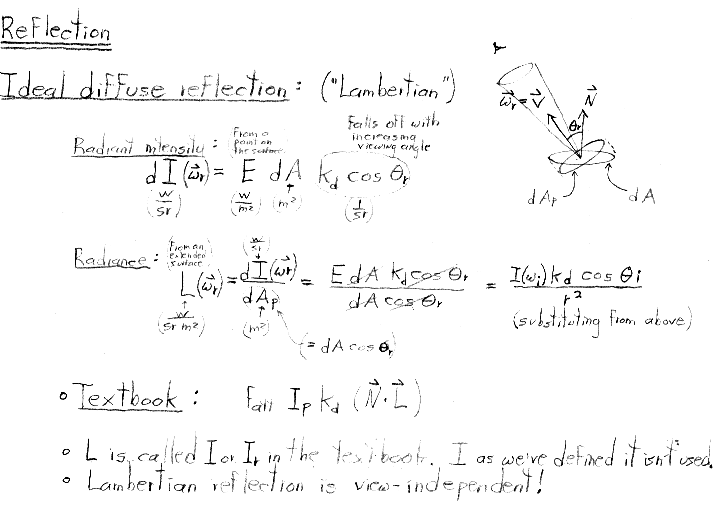 Reflection
Ideal diffuse reflection: ("Lambertian")
Radiant intensity: From a point on the surface
Falls off with increasing viewing angle
dI(ω⃗r) = E dA kd cos θr
(W/sr) (W/m²) (m²) (1/sr)
ω⃗r = V⃗ N⃗
θr
dAp dA
Radiance: From an extended surface
(W/sr)
L(ω⃗r) = dI(ω⃗r)/dAp = E dA kd cos θr/dA cos θr = I(ωi) kd cos θi/r²
(W/sr m²) (m²) (substituting from above)
(= dA cos θr)
• Textbook: fatt Ip kd (N⃗·L⃗)
• L is called I or Ir in the textbook. I as we've defined it isn't used.
• Lambertian reflection is view-independent!